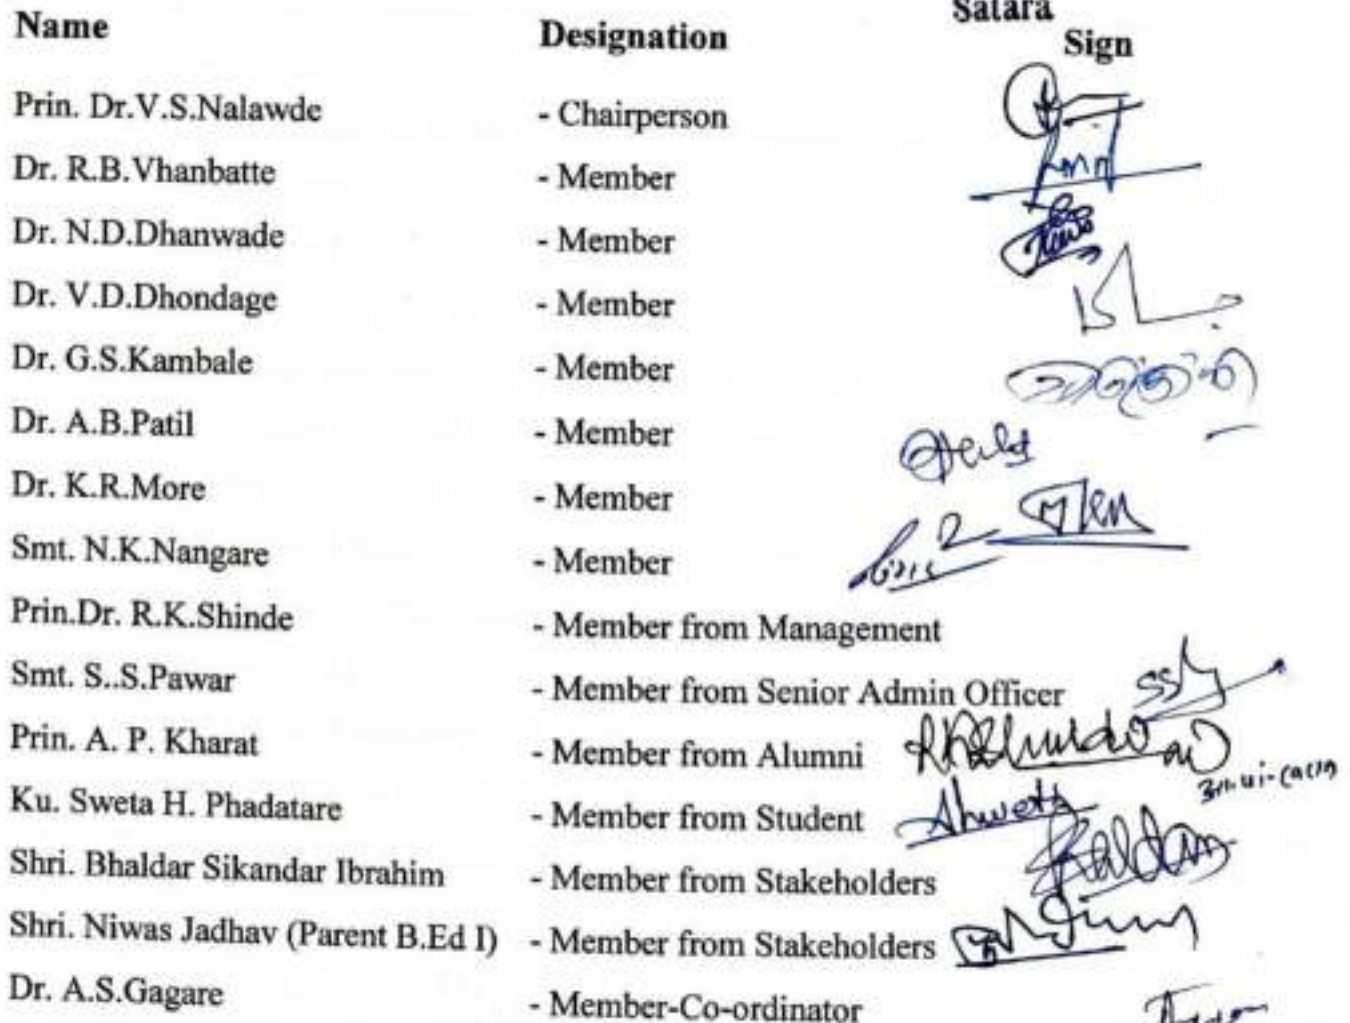 Satara
Name Designation Sign
Prin. Dr.V.S.Nalawde - Chairperson
Dr. R.B.Vhanbatte - Member
Dr. N.D.Dhanwade - Member
Dr. V.D.Dhondage - Member
Dr. G.S.Kambale - Member
Dr. A.B.Patil - Member
Dr. K.R.More - Member
Smt. N.K.Nangare - Member
Prin.Dr. R.K.Shinde - Member from Management
Smt. S..S.Pawar - Member from Senior Admin Officer
Prin. A. P. Kharat - Member from Alumni
Ku. Sweta H. Phadatare - Member from Student
Shri. Bhaldar Sikandar Ibrahim - Member from Stakeholders
Shri. Niwas Jadhav (Parent B.Ed I) - Member from Stakeholders
Dr. A.S.Gagare - Member-Co-ordinator